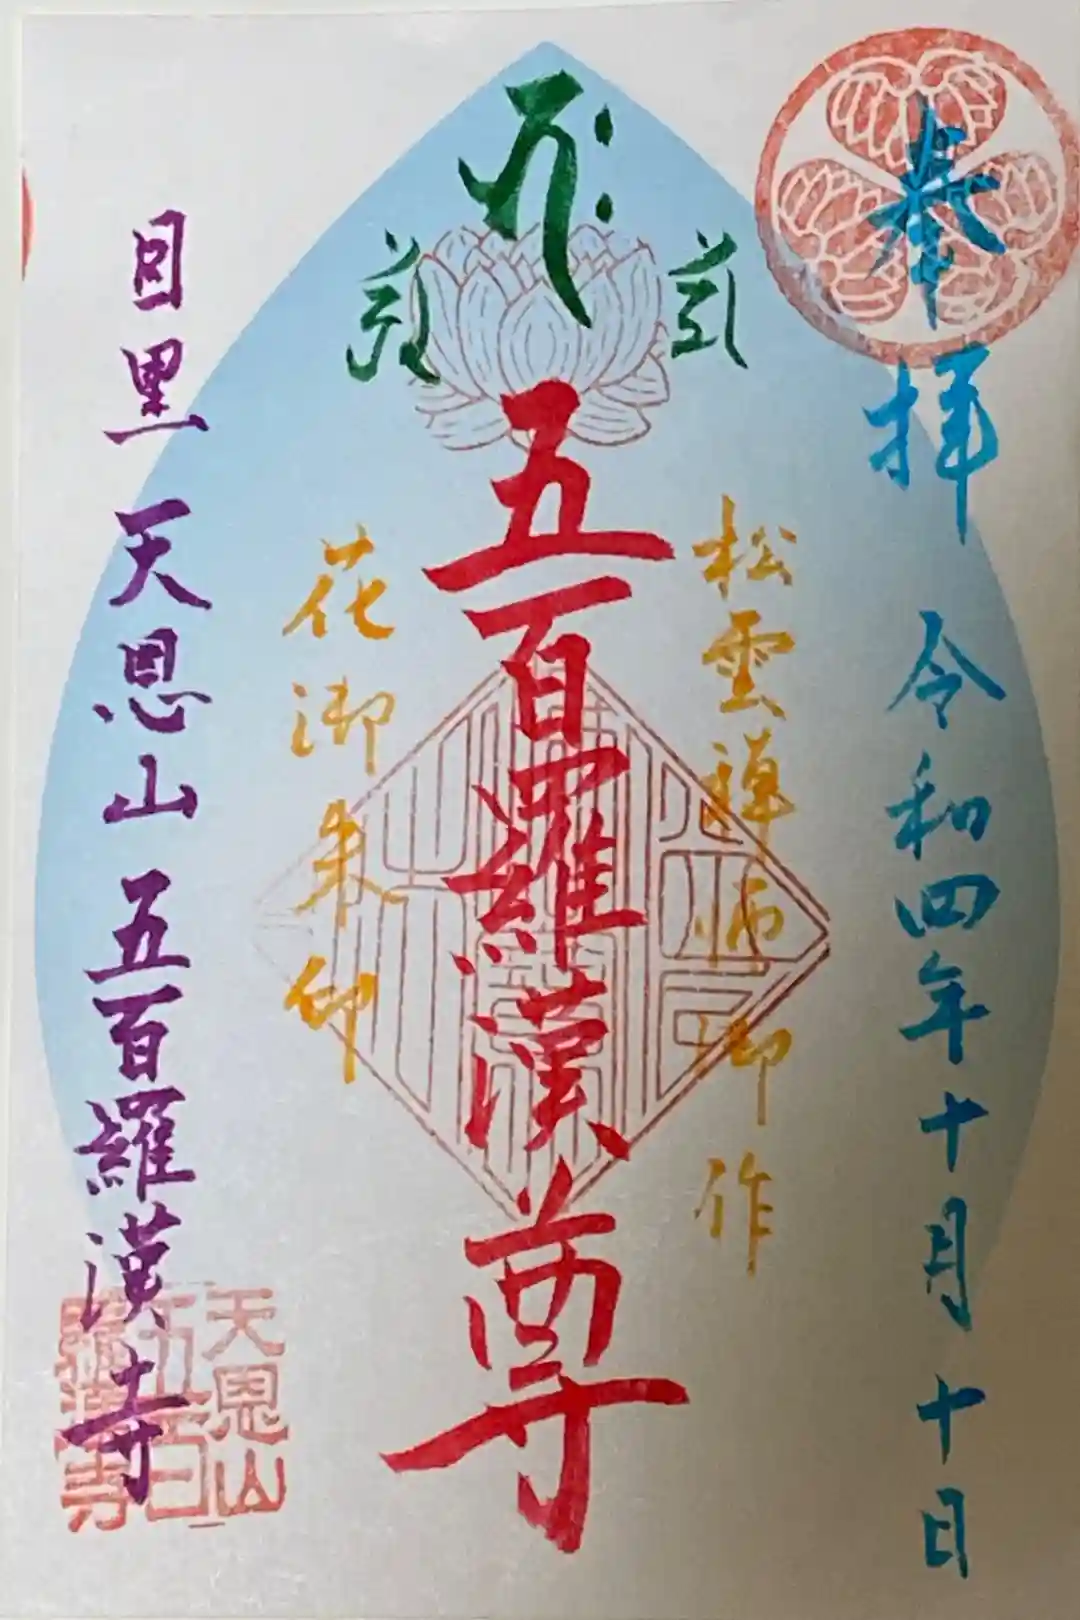 奉拝 令和四年十月十日
松雲禅師御作
五百羅漢尊
花御朱印
目黒 天恩山 五百羅漢寺
天恩山
五百
羅漢寺